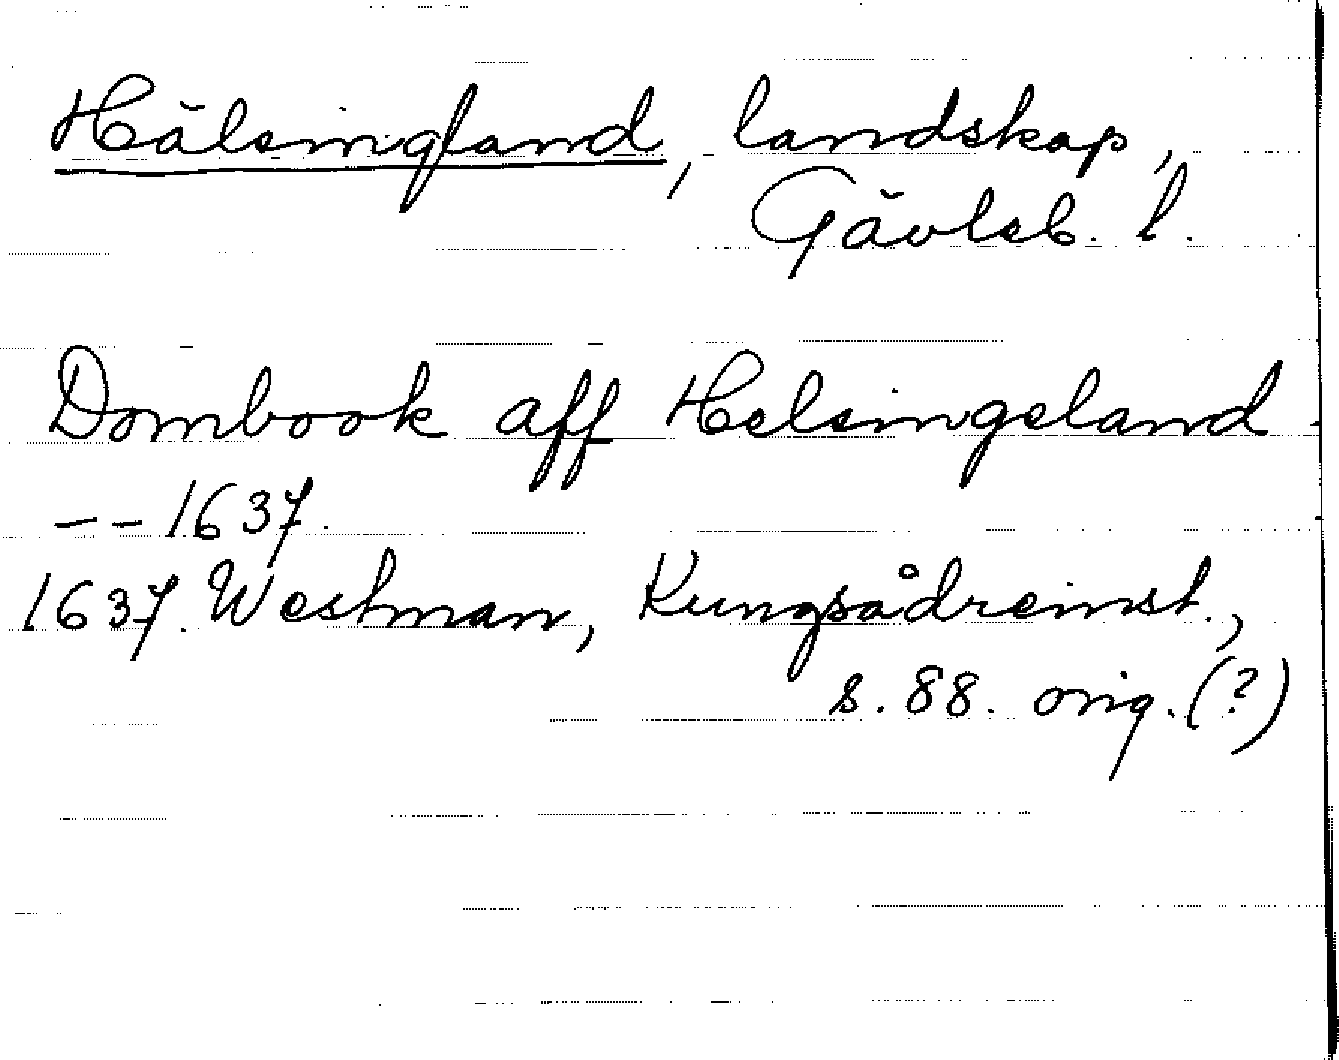 Hälsingland, landskap,
Gävleb. l.
Dombook aff Helsingeland -
-- 1637.
1637. Westman, Kungsådreinst.,
s. 88. orig. (?)